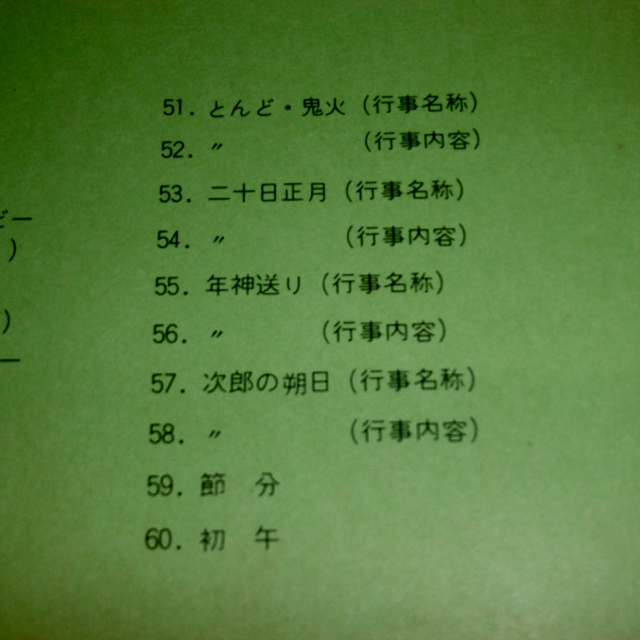 51. とんど・鬼火 (行事名称)
52. 〃 (行事内容)
53. 二十日正月 (行事名称)
54. 〃 (行事内容)
55. 年神送り (行事名称)
56. 〃 (行事内容)
57. 次郎の朔日 (行事名称)
58. 〃 (行事内容)
59. 節 分
60. 初 午